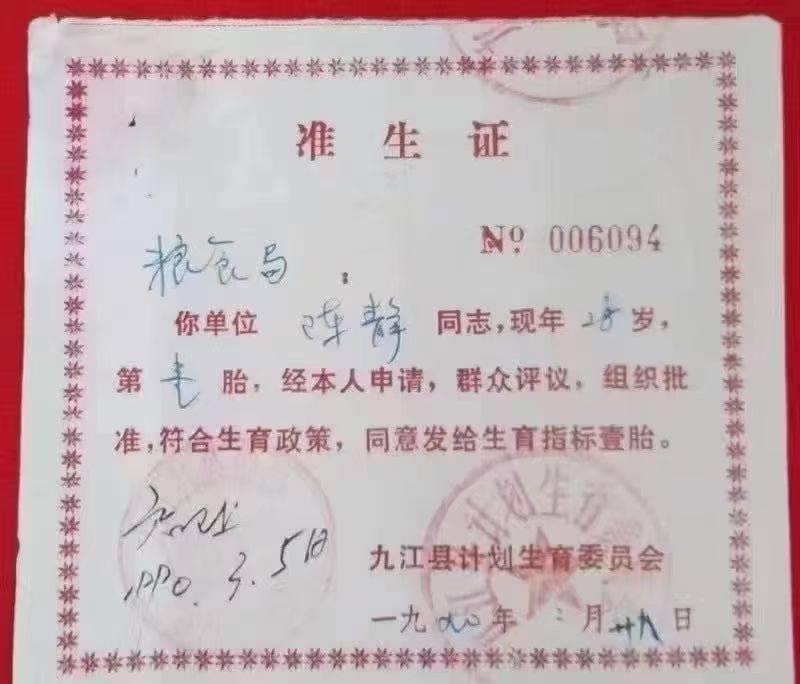 准生证
№ 006094
粮食局：
你单位 陈静 同志，现年 28 岁，
第 壱 胎，经本人申请，群众评议，组织批
准，符合生育政策，同意发给生育指标壹胎。
1990.3.5日
九江县计划生育委员会
一九九0年 二月 廿八日
计划生育